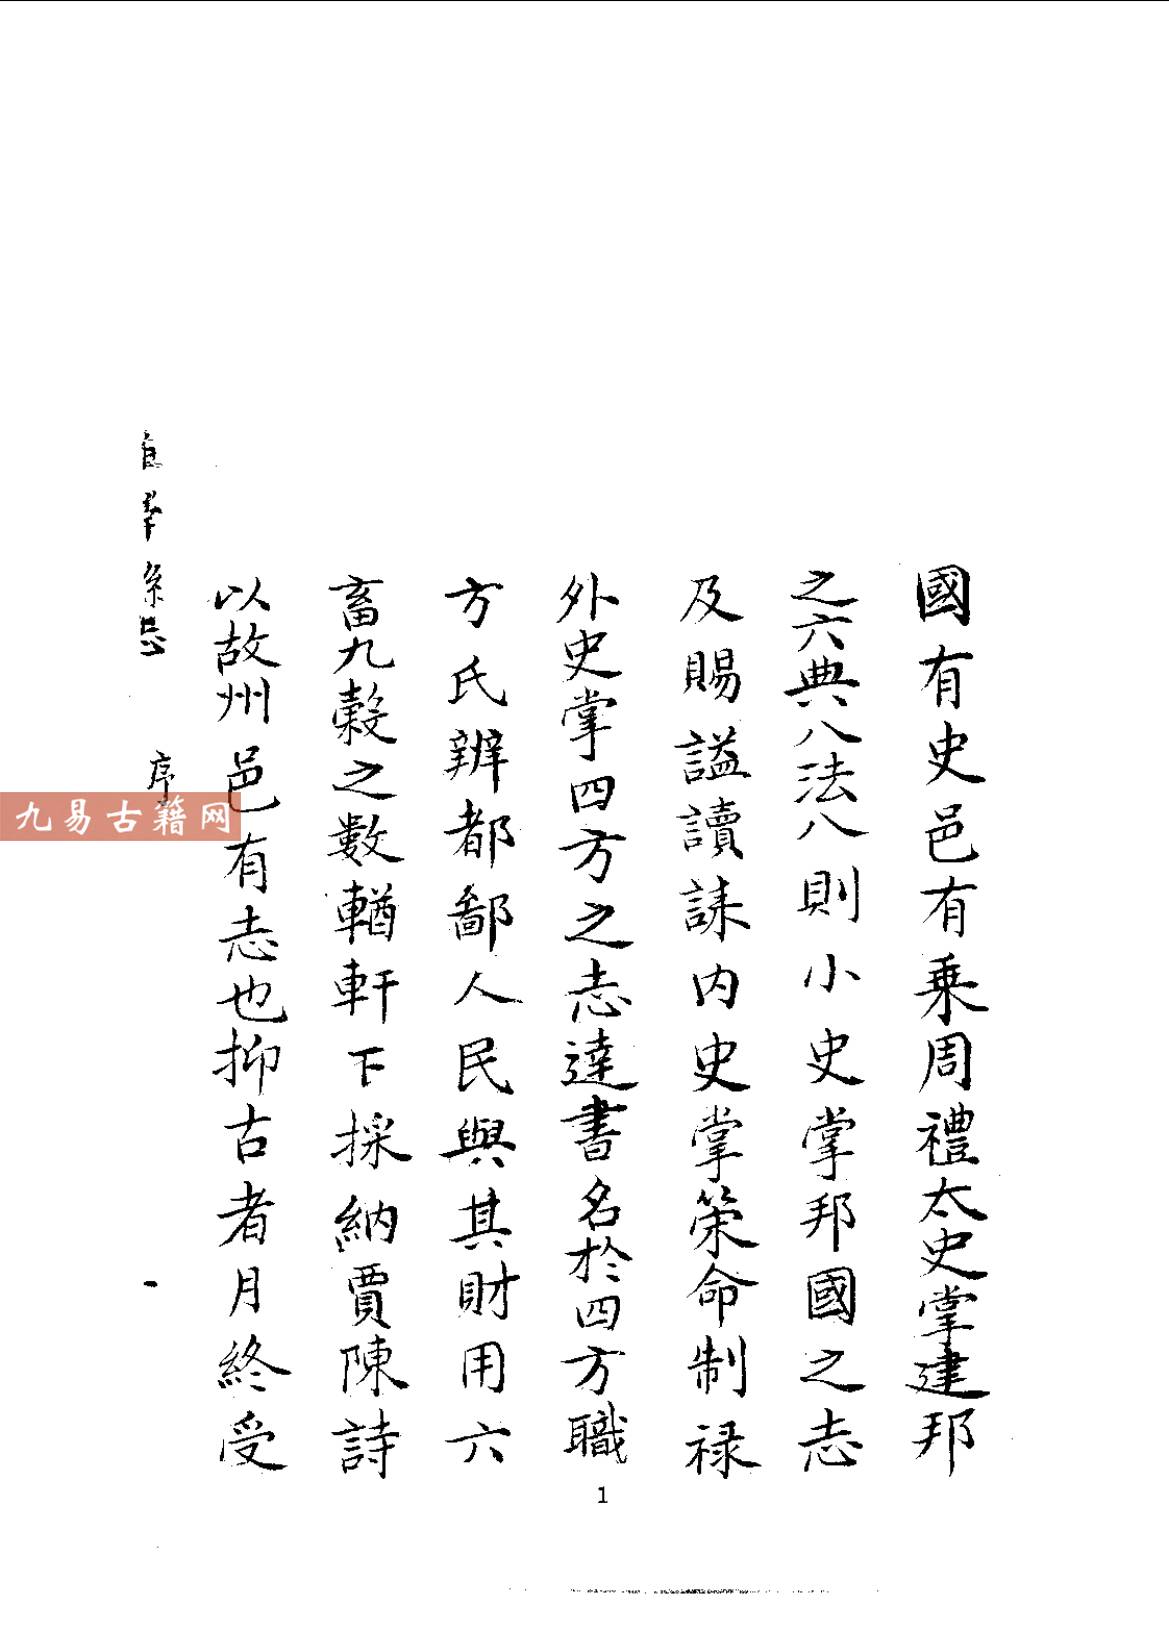 國有史邑有乘周禮太史掌建邦
之六典八法八則小史掌邦國之志
及賜謚讀誄内史掌策命制禄
外史掌四方之志達書名於四方職
方氏辨都鄙人民與其財用六
畜九穀之數輶軒下採納賈陳詩
以故州邑有志也抑古者月終受
序
一
九易古籍网
1